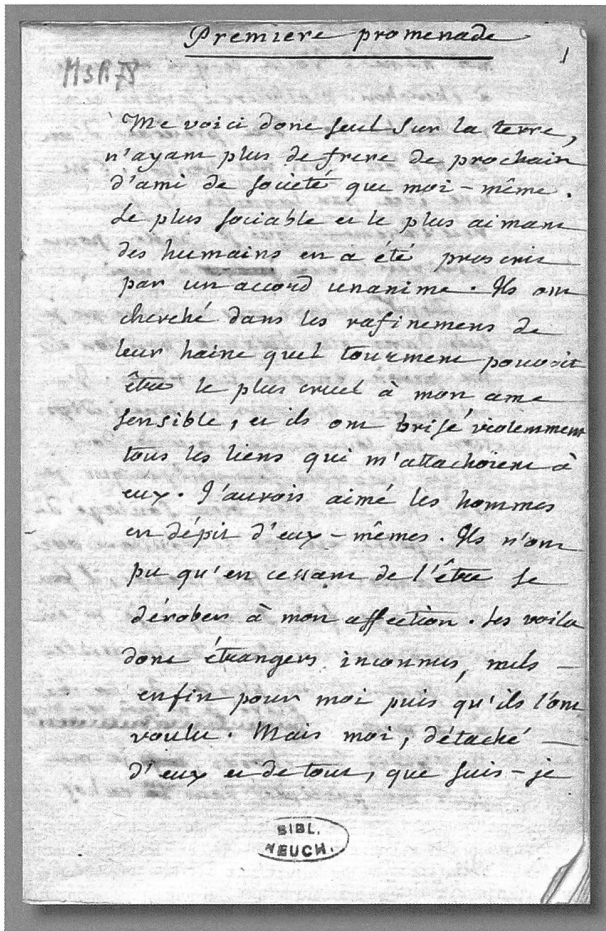 Premiere promenade
1
MsR 78
Me voici donc seul sur la terre,
n'ayant plus de frere de prochain
d'ami de societé que moi-même.
Le plus sociable et le plus aimant
des humains en a été proscrit
par un accord unanime. Ils ont
cherché dans les rafinemens de
leur haine quel tourment pouvoit
être le plus cruel à mon ame
sensible, et ils ont brisé violemment
tous les liens qui m'attachoient à
eux. J'aurois aimé les hommes
en dépit d'eux-mêmes. Ils n'ont
pu qu'en cessant de l'être se
dérober à mon affection. Les voila
donc étrangers, inconnus, nuls —
enfin pour moi puis qu'ils l'ont
voulu. Mais moi, détaché —
d'eux et de tout, que suis-je
BIBL.
NEUCH.